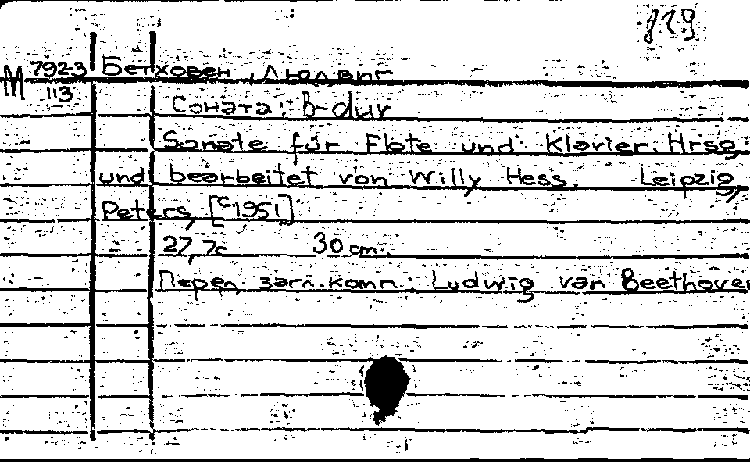 819
М 7923 Бетховен, Людвиг
113
Соната: B-dur
Sonate für Flöte und Klavier. Hrsg.
und bearbeitet von Willy Hess. Leipzig,
Peters, [c 1951]
27, 7c 30 cm.
Перед загл. комп.: Ludwig van Beethoven